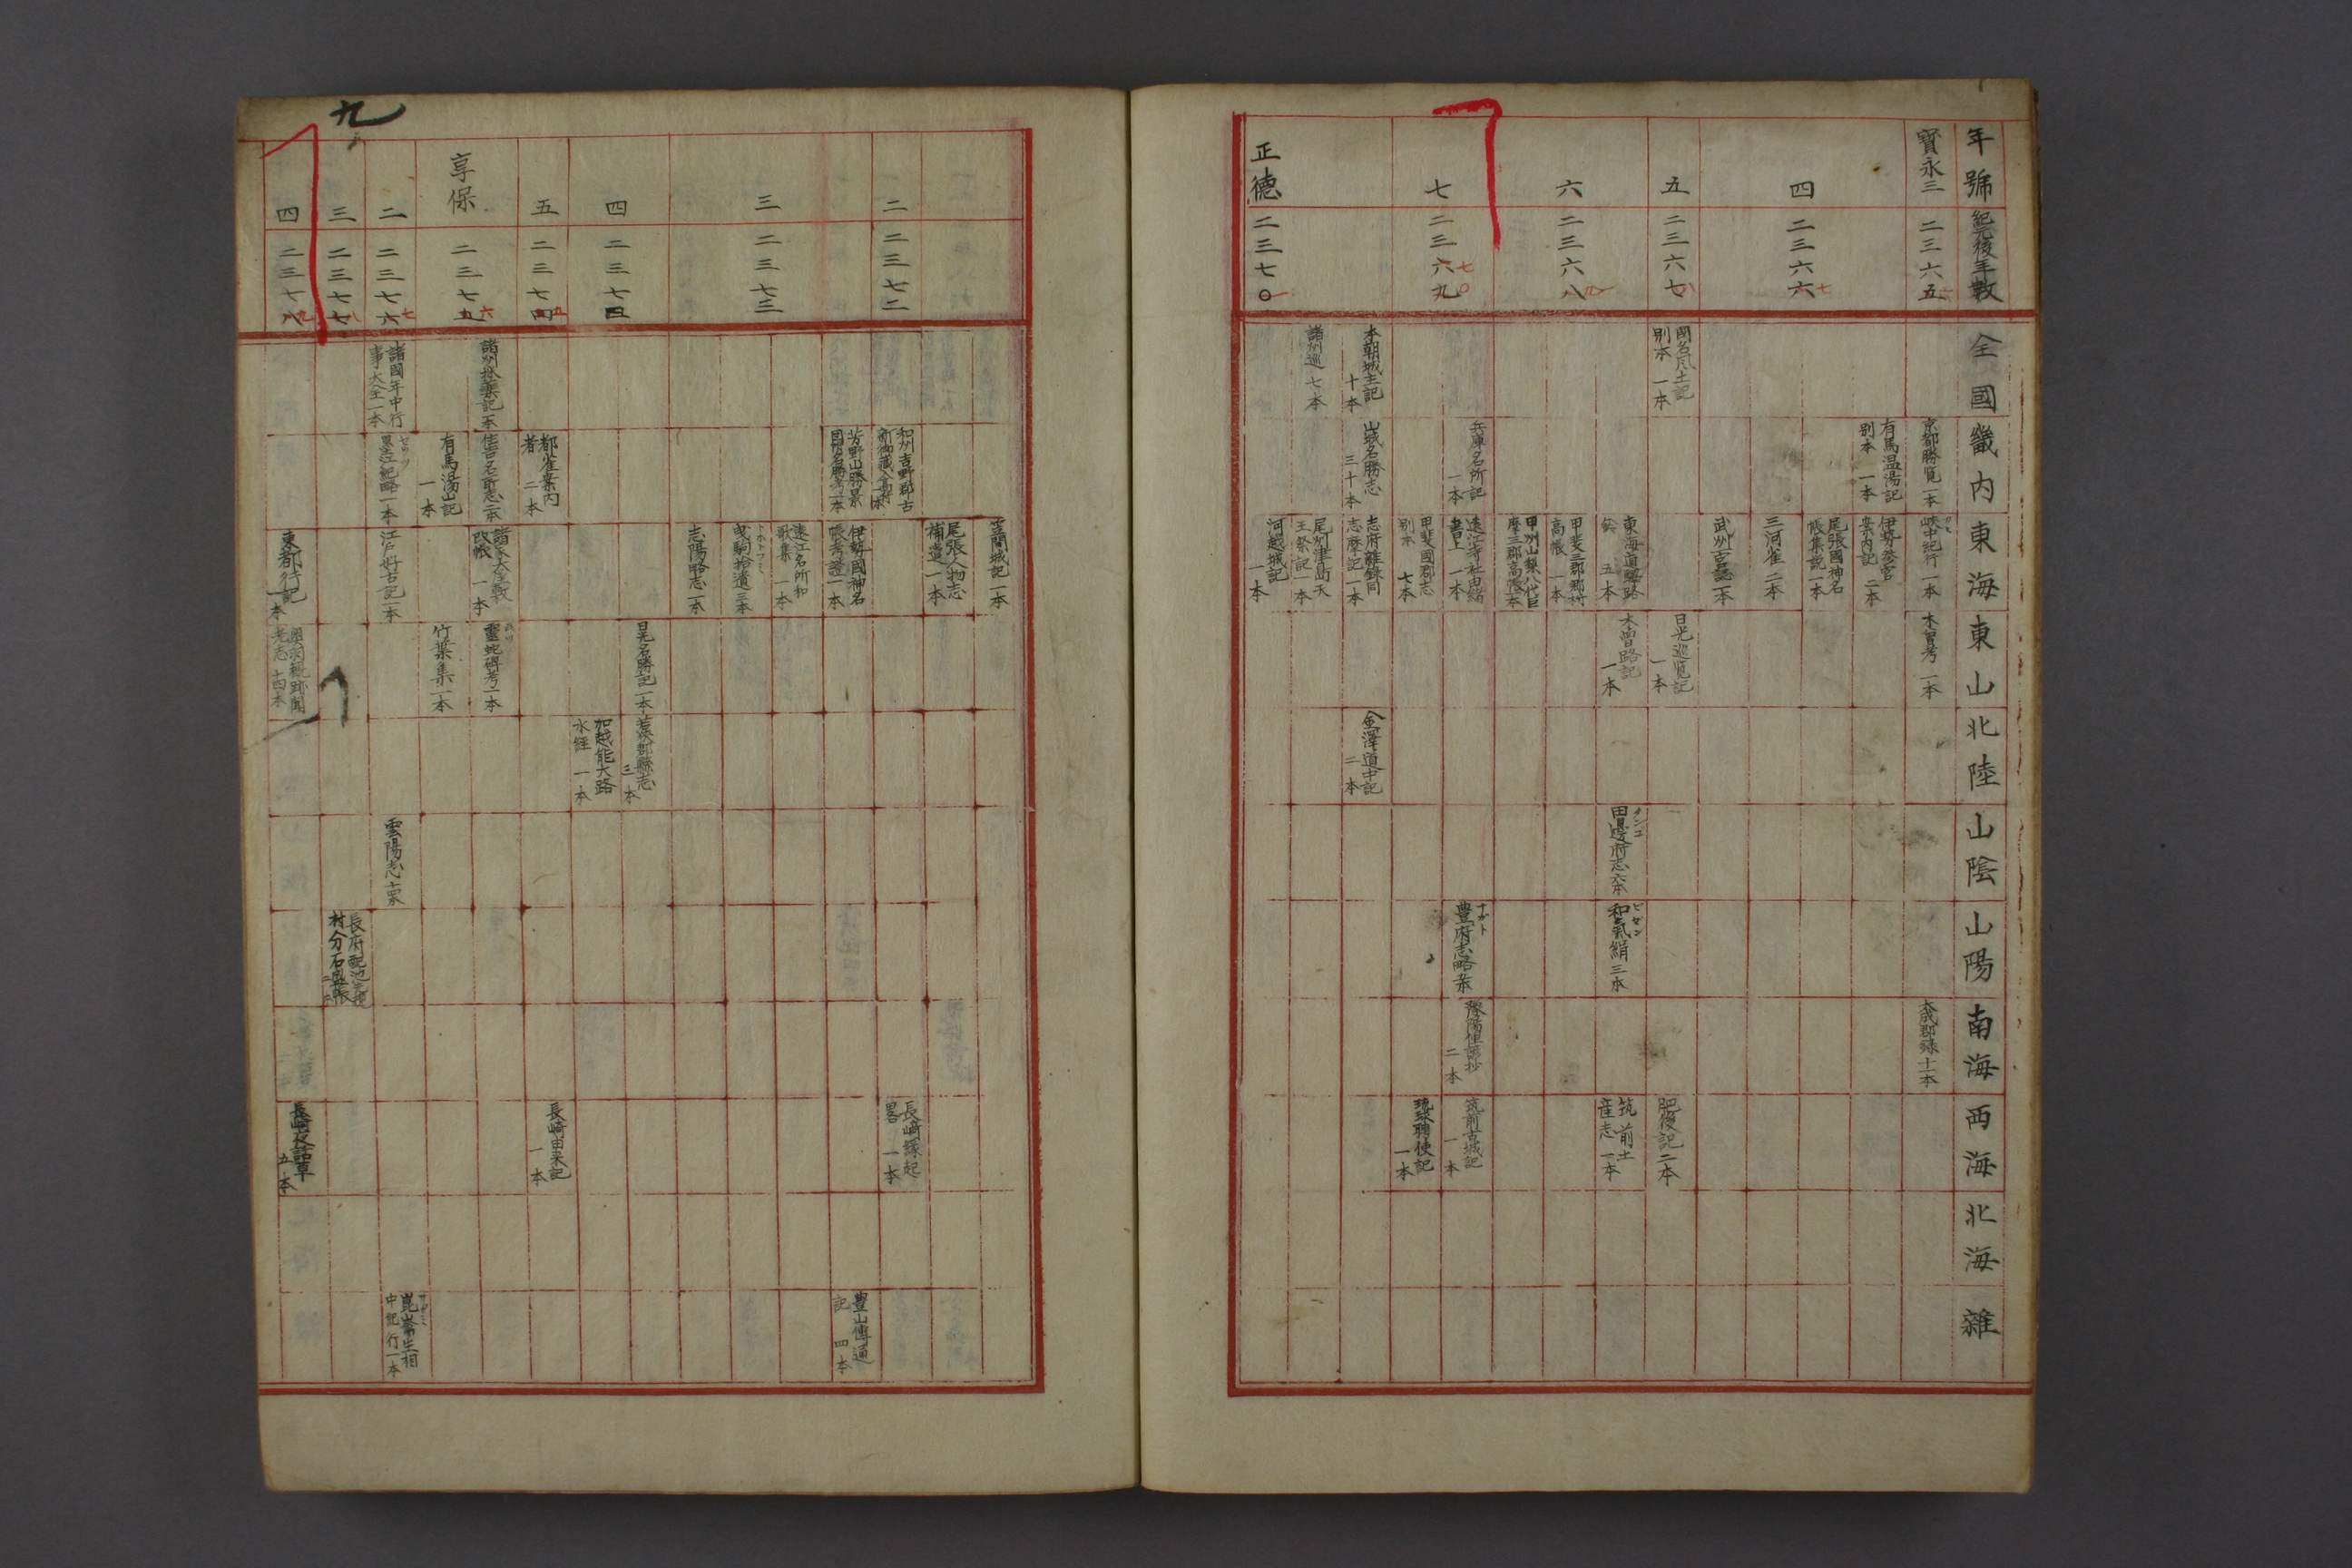 年號
紀元後年數
全國
畿内
東海
東山
北陸
山陰
山陽
南海
西海
北海
雜
寶永三
二三六五
京都勝覧 一本
峡中紀行 一本
木曽考 一本
有馬温湯記
別本 一本
伊勢参宮
案内記 二本
四
二三六六
七
尾張國神名
帳集説 一本
三河雀 二本
五
二三六七
八
別本 一本
日光巡覧記
一本
肥後記 二本
六
二三六八
九
東海道
五本
木曽路記
一本
タンゴ
田邊府志 六本
ビゼン
和氣絹 三本
筑前土
産志 一本
甲斐三郡郷村
高帳 一本
甲州山梨八代巨
摩三郡高帳 一本
七
二三六九
七〇
兵庫名所記
一本
書上 一本
ナガト
豊府志略
豫陽俚諺抄
二本
筑前古城記
一本
甲斐國郡志
別本 七本
琉球聘使記
一本
本朝城主記
十本
山城名勝志
三十本
志府雜錄同
志摩記 一本
金澤道中記
二本
諸州巡 七本
尾州津島天
王祭記 一本
正德
二三七〇
河越城記
一本
笠間城記 一本
尾張人物志
補遺 一本
二
二三七二
和州吉野郡古
長崎縁起
畧 一本
三
二三七三
芳野山勝景
伊勢國神名
帳考證 一本
豊山傳通
記 四本
遠江名所和
歌集 一本
曳駒拾遺 三本
志陽略志 一本
四
二三七四
日光名勝記 一本
若狭郡縣志
三本
加越能大路
水経 一本
五
二三七四
五
都雀案内
者 二本
長崎由来記
一本
享保
二三七五
六
諸州採藥記 一本
住吉名所志 一本
改帳 一本
靈蛇碑考 一本
有馬湯山記
一本
竹葉集 一本
二
二三七六
七
諸國年中行
事大全 一本
墨江紀略 一本
江戸好古記 一本
雲陽志
崑崙生相
中記行 一本
三
二三七七
八
村分石
四
二三七八
九
東都行記
一本
奥羽観跡聞
老志 十四本
長崎夜話草
五本
九